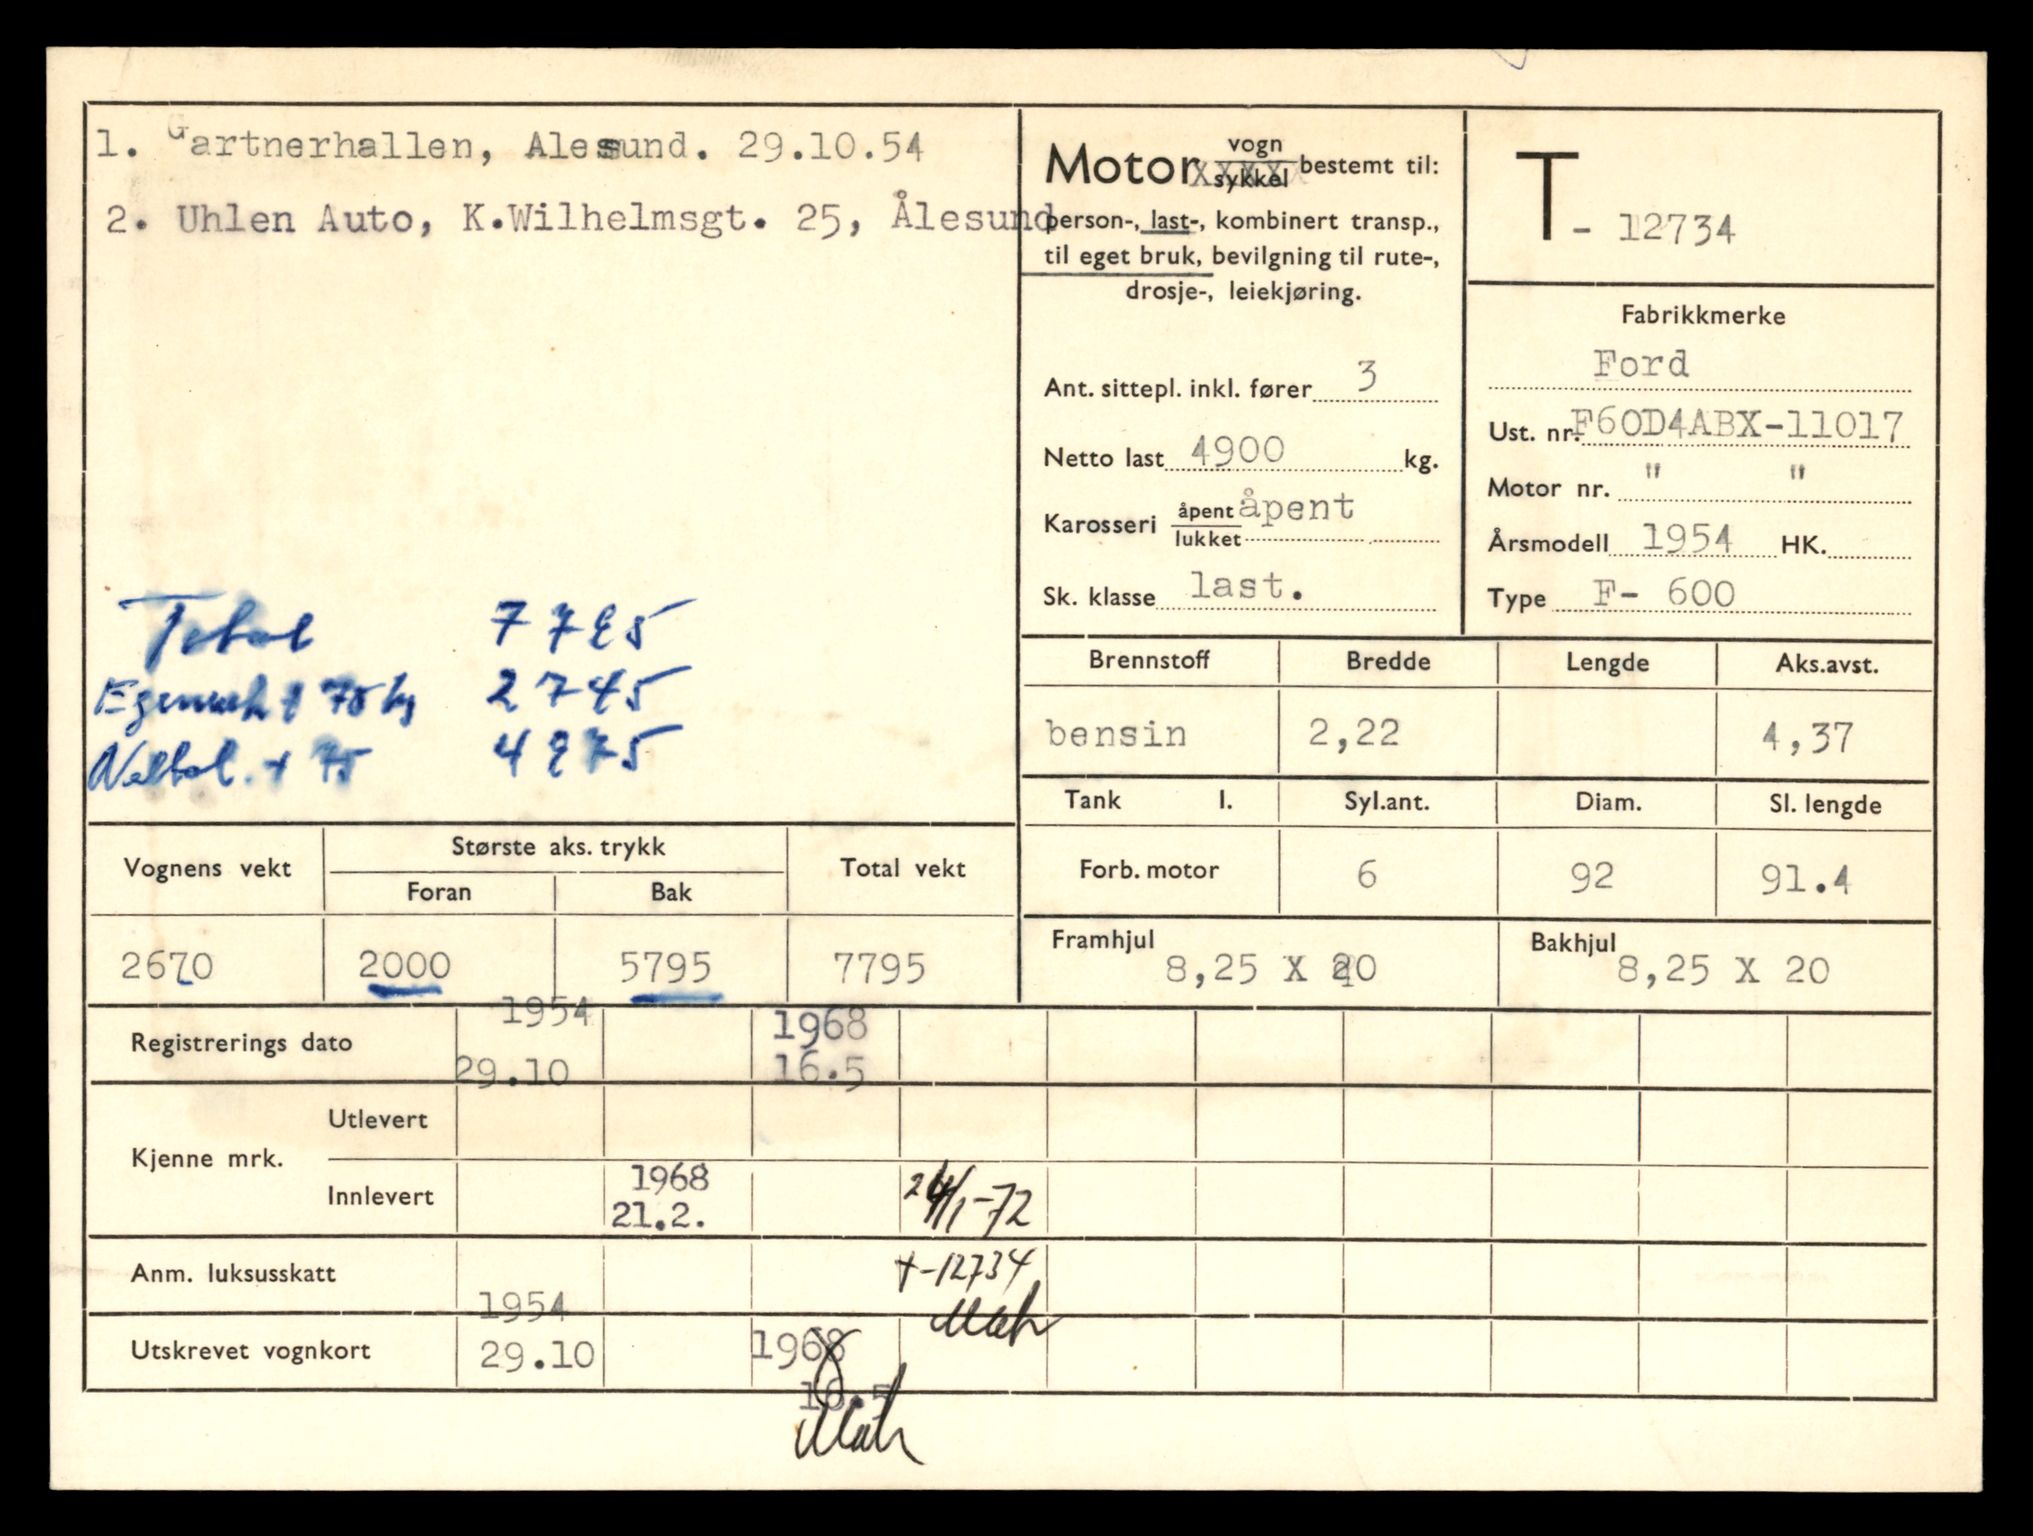 1. Gartnerhallen, Alesund. 29.10.54
2. Uhlen Auto, K.Wilhelmsgt. 25, Ålesund
Total 7795
Egenvekt + 75 kg 2745
+ 75 4975
Motor vogn sykkel bestemt til:
person-, last-, kombinert transp.,
til eget bruk, bevilgning til rute-,
drosje-, leiekjøring.
Ant. sittepl. inkl. fører 3
Netto last 4900 kg.
Karosseri åpent lukket åpent
Sk. klasse last.
T - 12734
Fabrikkmerke
Ford
Ust. nr. F60D4ABX-11017
Motor nr. " "
Årsmodell 1954 HK.
Type F- 600
Brennstoff Bredde Lengde Aks.avst.
bensin 2,22 4,37
Tank l. Syl.ant. Diam. Sl. lengde
Forb. motor 6 92 91.4
Framhjul 8,25 X 20 Bakhjul 8,25 X 20
Vognens vekt Største aks. trykk Total vekt
Foran Bak
2670 2000 5795 7795
Registrerings dato 1954 29.10 1968 16.5
Kjenne mrk.
Utlevert
Innlevert 1968 21.2. 24/1-72
Anm. luksusskatt T-12734
Utskrevet vognkort 1954 29.10 1968 16.5